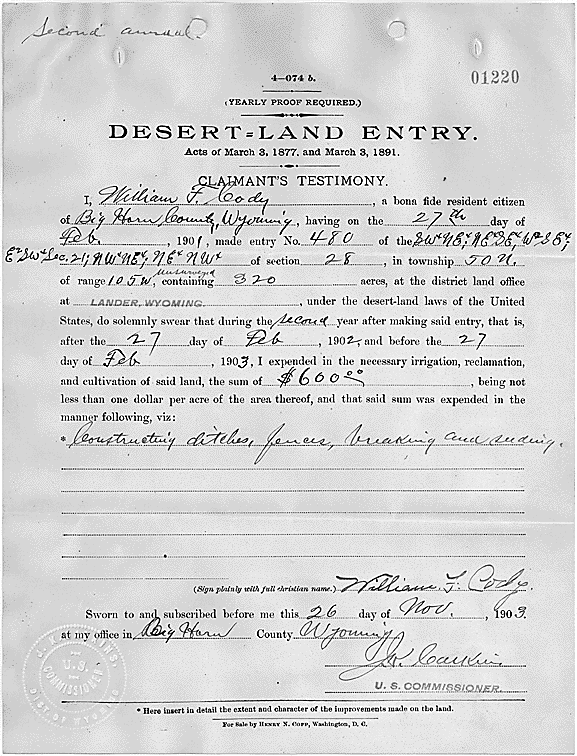 Second annual
01220
4—074 b.
(YEARLY PROOF REQUIRED.)
DESERT-LAND ENTRY.
Acts of March 3, 1877, and March 3, 1891.
CLAIMANT'S TESTIMONY.
I, William F. Cody, a bona fide resident citizen
of Big Horn County, Wyoming, having on the 27th day of
Feb., 1901, made entry No. 480 of the SW4 NE4; NE4 SE4; W2 SE4;
E2 SW4 Sec. 21; NW4 NE4; NE4 NW4 of section 28, in township 50 N.
unsurveyed
of range 105 W, containing 320 acres, at the district land office
at LANDER, WYOMING., under the desert-land laws of the United
States, do solemnly swear that during the second year after making said entry, that is,
after the 27 day of Feb, 1902, and before the 27
day of Feb, 1903, I expended in the necessary irrigation, reclamation,
and cultivation of said land, the sum of $600 00, being not
less than one dollar per acre of the area thereof, and that said sum was expended in the
manner following, viz:
* Constructing ditches, fences, breaking and seeding.
(Sign plainly with full christian name.) William F. Cody.
Sworn to and subscribed before me this 26 day of Nov., 1903.
at my office in Big Horn County Wyoming
U. S. COMMISSIONER.
U.S.
COMMISSIONER
* Here insert in detail the extent and character of the improvements made on the land.
For Sale by HENRY N. COPP, Washington, D. C.